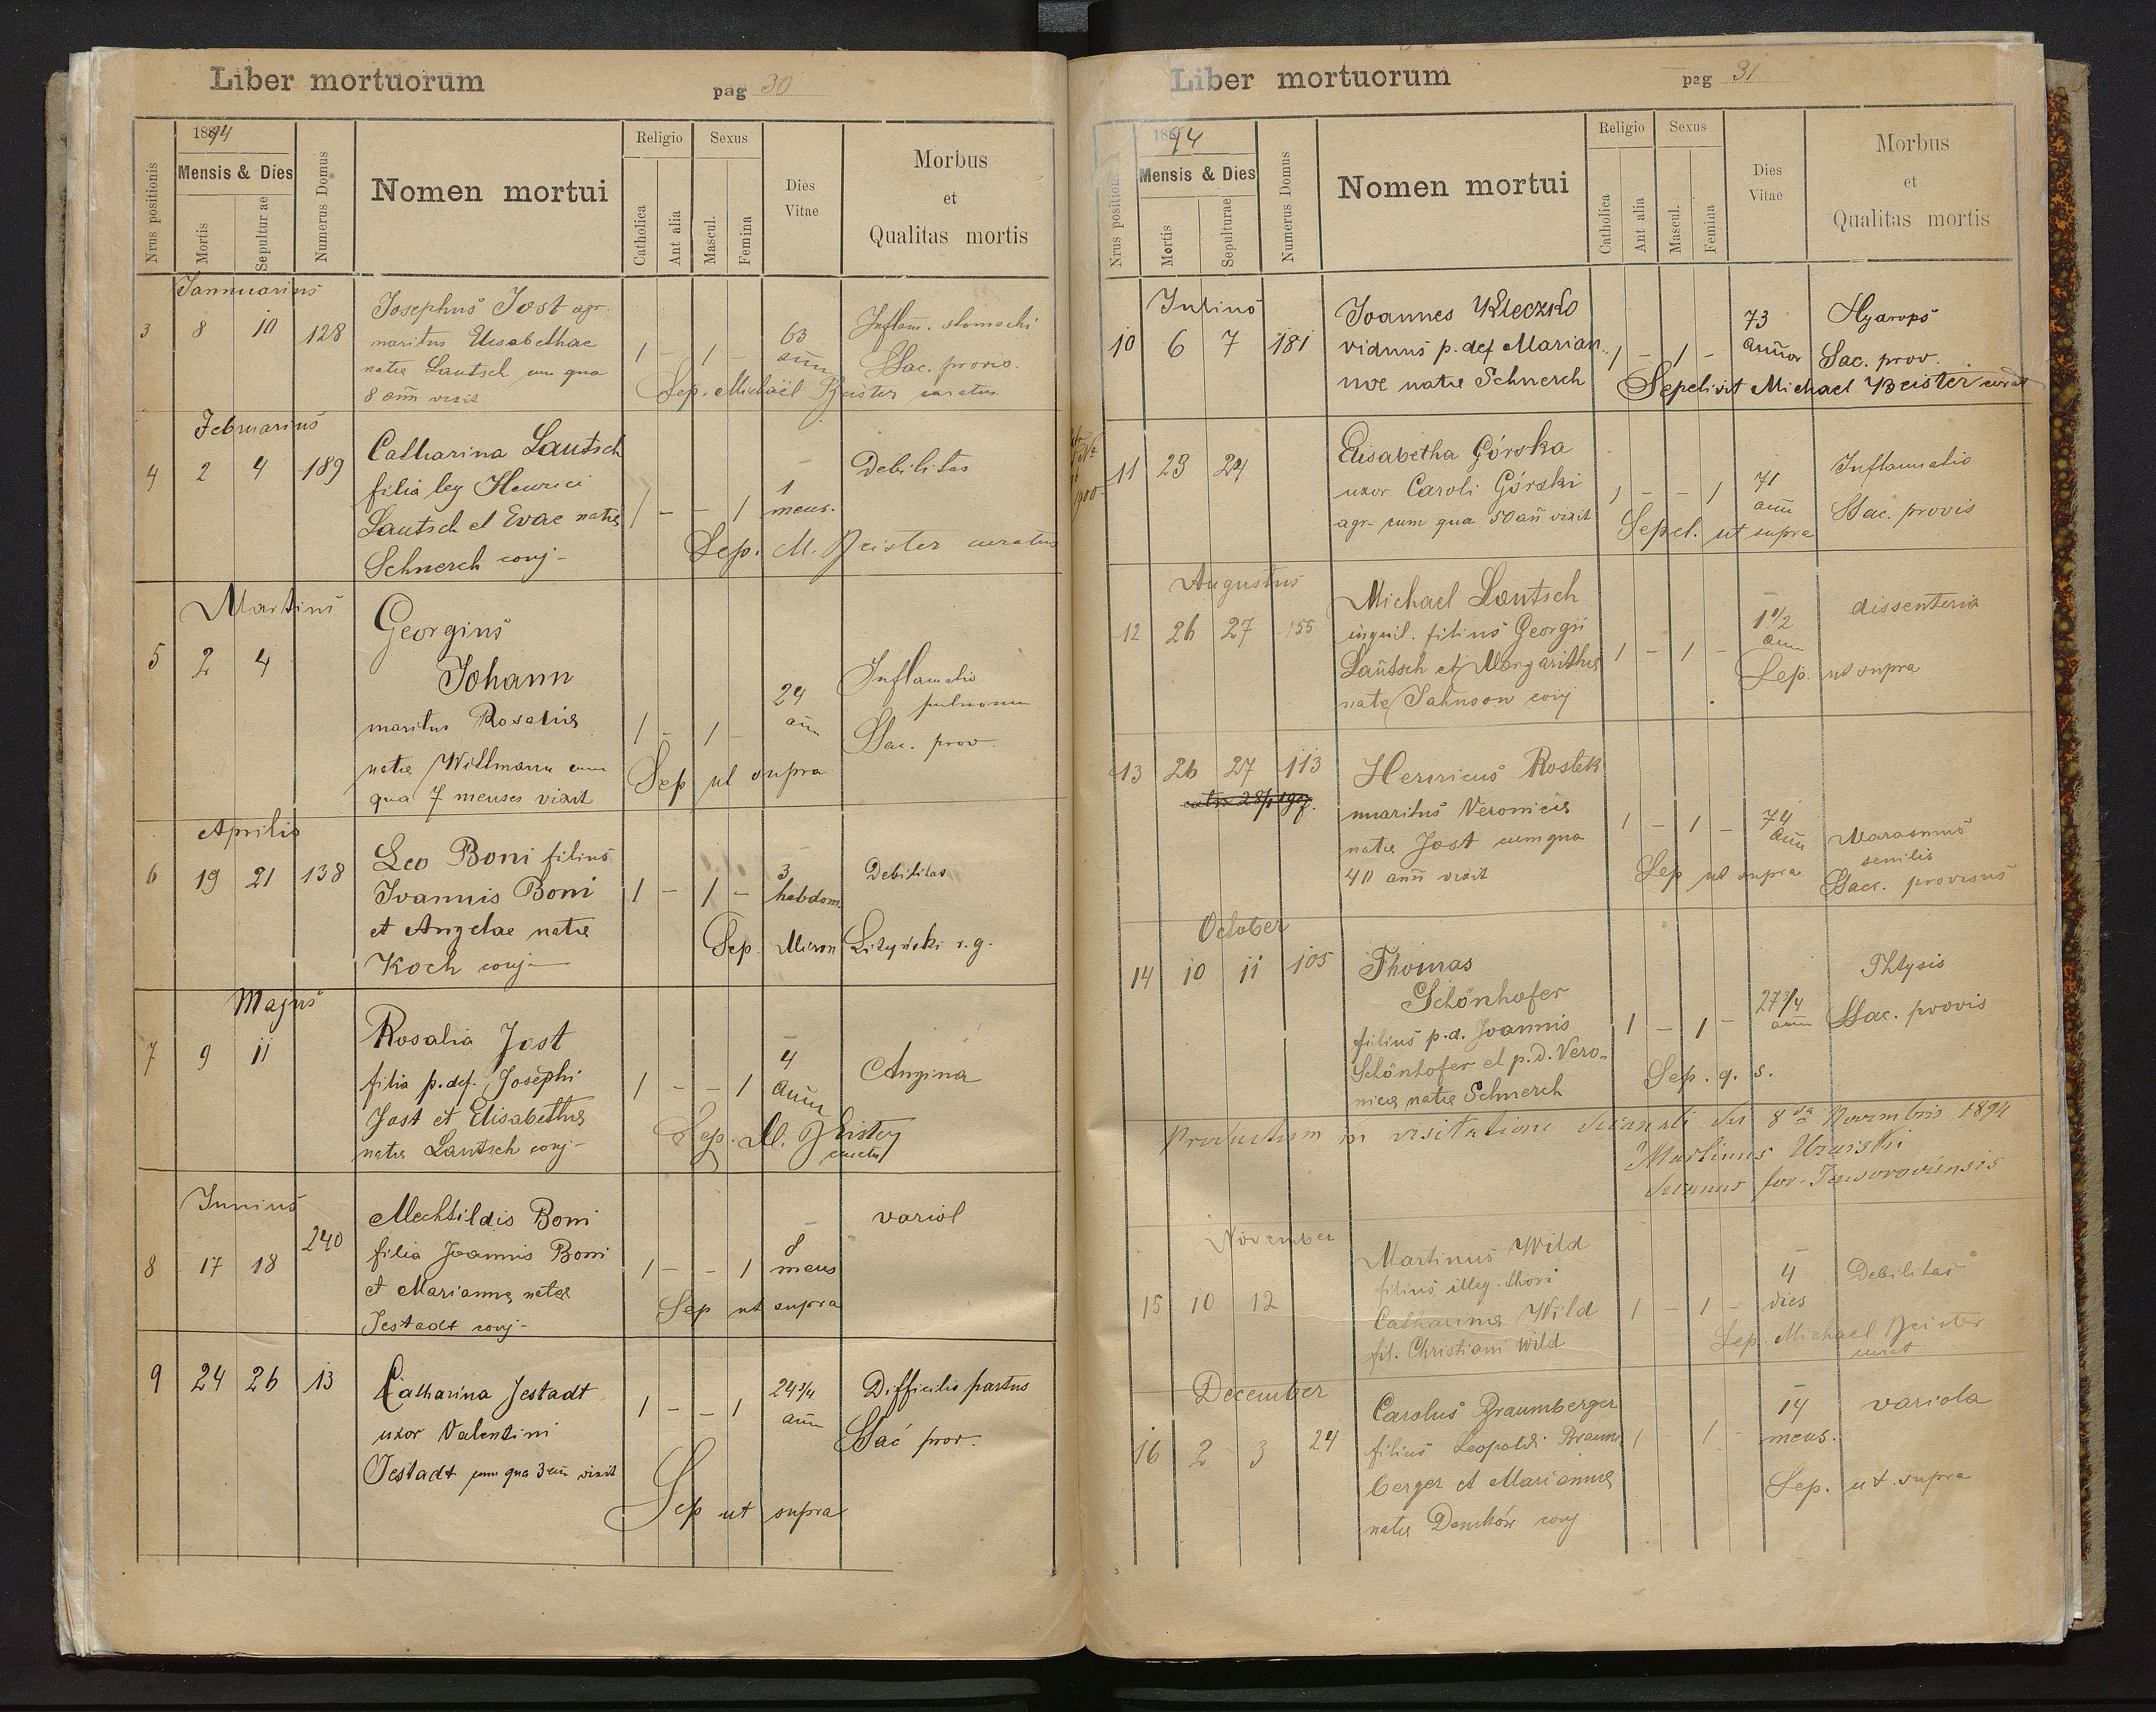 Liber mortuorum
pag 30
1894
Mensis & Dies
Nrus positionis
Mortis
Sepulturae
Numerus Domus
Nomen mortui
Religio
Catholica
Ant alia
Sexus
Mascul.
Femina
Dies
Vitae
Morbus
et
Qualitas mortis
Jannuarius
3 8 10 128
Josephus Jost agr.
maritus Elisabethae
natae Lautsch cum qua
8 añ vixit
1 - 1 -
63
añ
Inflam. stomachi
Sac. provis.
Sep. Michaël Beister curatus
Februarius
4 2 4 189
Catharina Lautsch
filia leg Henrici
Lautsch et Evae natae
Schnerch conj-
1 - - 1
1
mens.
Debilitas
Sep. M. Beister curatus
Martius
5 2 4
Georgius
Johann
maritus Rosaliae
natae Willmann cum
qua 7 menses vixit
1 - 1 -
24
añ
Inflamatio
pulmonum
Sac. prov.
Sep ut supra
Aprilis
6 19 21 138
Leo Boni filius
Joannis Boni
et Angelae natae
Koch conj-
1 - 1 -
3
hebdom.
Debilitas
Sep. Miron r.g.
Majus
7 9 11
Rosalia Jost
filia p. def. Josephi
Jost et Elisabethae
natae Lautsch conj-
1 - - 1
4
añ
Angina
Sep. M. Beister
curatus
Junius
8 17 18 240
Mechtildis Boni
filia Joannis Boni
et Mariannae natae
Jestadt conj-
1 - - 1
8
mens
variol
Sep ut supra
9 24 26 13
Catharina Jestadt
uxor Valentini
Jestadt cum qua 3 añ vixit
1 - - 1
24 3/4
añ
Difficilis partus
Sac prov.
Sep ut supra
Liber mortuorum
pag 31
1894
Mensis & Dies
Nrus positionis
Mortis
Sepulturae
Numerus Domus
Nomen mortui
Religio
Catholica
Ant alia
Sexus
Mascul.
Femina
Dies
Vitae
Morbus
et
Qualitas mortis
Julius
10 6 7 181
Joannes Kleczko
viduus p. def Marian-
nae natae Schnerch
1 - 1 -
73
annor
Hydrops
Sac. prov.
Sepelivit Michael Beister curat
1900
11 23 24
Elisabetha Górska
uxor Caroli Górski
agr- cum qua 50 añ vixit
1 - - 1
71
añ
Inflamatio
Sac. provis
Sepel. ut supra
Augustus
12 26 27 155
Michael Lautsch
inquil. filius Georgii
Lautsch et Margarithae
natae conj
1 - 1 -
1 1/2
añ
dissenteria
Sep. ut supra
13 26 27 113
Henricus Rostek
maritus Veronicae
natae Jost cum qua
40 añ vixit
1 - 1 -
74
añ
Marasmus
senilis
Sacr. provisus
Sep ut supra
October
14 10 11 105
Thomas
Schönhofer
filius p. d. Joannis
Schönhofer et p. d. Vero-
nicae natae Schnerch
1 - 1 -
27 3/4
añ
Phtysis
Sac. provis
Sep. q. s.
Productum in visitatione decanali die 8va Novembris 1894
Martinus
decanus for. Jaworoviensis
November
15 10 12
Martinus Wild
filius illeg. thori
Catharinae Wild
fil. Christiani Wild
1 - 1 -
4
dies
Debilitas
Sep. Michael Beister
curat
December
16 2 3 24
Carolus Braumberger
filius Leopoldi Braum
berger et Mariannae
natae Demków conj
1 - 1 -
14
mens.
variola
Sep. ut supra